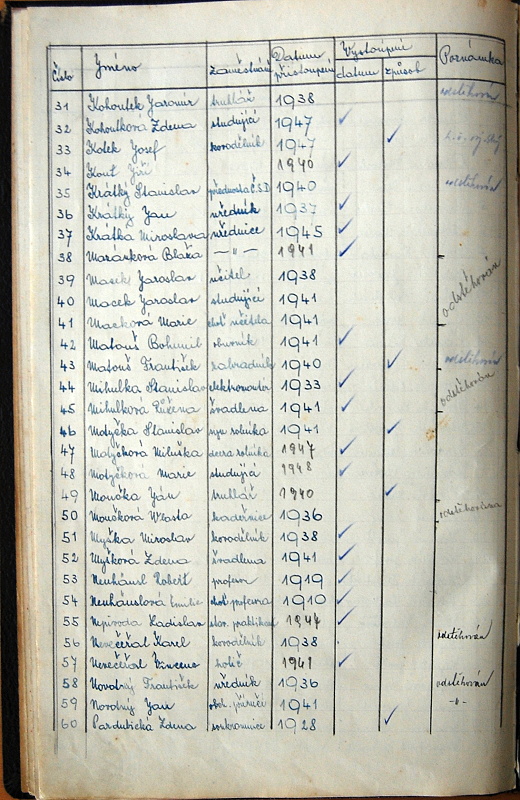 Číslo Jméno Zaměstnání Datum přistoupení Vystoupení datum způsob Poznámka
31 Kohoutek Jaromír truhlář 1938 odstěhován
32 Kohoutková Zdena studující 1947
33 Kotek Josef kovodělník 1947
34 Kout Jiří 1940
35 Krátký Stanislav přednosta Č.S.D. 1940 odstěhován
36 Krátký Jan úředník 1937
37 Krátká Miroslava úřednice 1945
38 Maranková Blaža — " — 1941
39 Masek Jaroslav učitel 1938
40 Macek Jaroslav studující 1941 odstěhován
41 Macková Marie choť učitele 1941
42 Matouš Bohumil 1941
43 Matouš František zahradník 1940 odstěhován
44 Mihulka Stanislav elektromontér 1933 odstěhován
45 Mihulková Růžena švadlena 1941
46 Motyčka Stanislav syn rolníka 1941
47 Motyčková Miluška dcera rolníka 1947
48 Motyčková Marie studující 1948
49 Moučka Jan truhlář 1940
50 Moučková Vlasta kadeřnice 1936 odstěhována
51 Myška Miroslav kovodělník 1938
52 Myšková Zdena švadlena 1941
53 Neuhäusl Robert profesor 1919
54 Neuhäuslová Emilie choť profesora 1910
55 Nepivoda Ladislav praktikant 1947
56 Nevečeřal Karel kovodělník 1938 odstěhován
57 Nevečeřal Vincenc holič 1941
58 Novotný František úředník 1936 odstěhován
59 Novotný Jan obch. příručí 1941 -"-
60 Pardubická Zdena soukromnice 1928